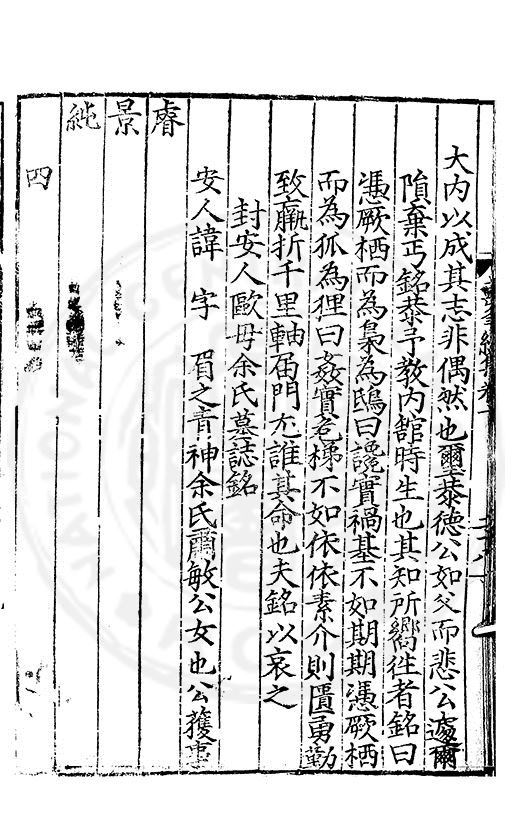 大内以成其志非偶然也爾㤗德公如父而悲公遽爾
隕棄丐銘㤗予教内舘時生也其知所嚮徃者銘曰
憑厥栖而為梟為鴟曰讒實禍基不如期期憑厥栖
而為狐為狸曰姦實 梯不如依依素介則匱勇勤
致羸折千里軸屆門尢誰其命也夫銘以哀之
封安人歐母余氏墓誌銘
安人諱 字 眉之青神余氏爾敏公女也公獲事
睿
景
純
四